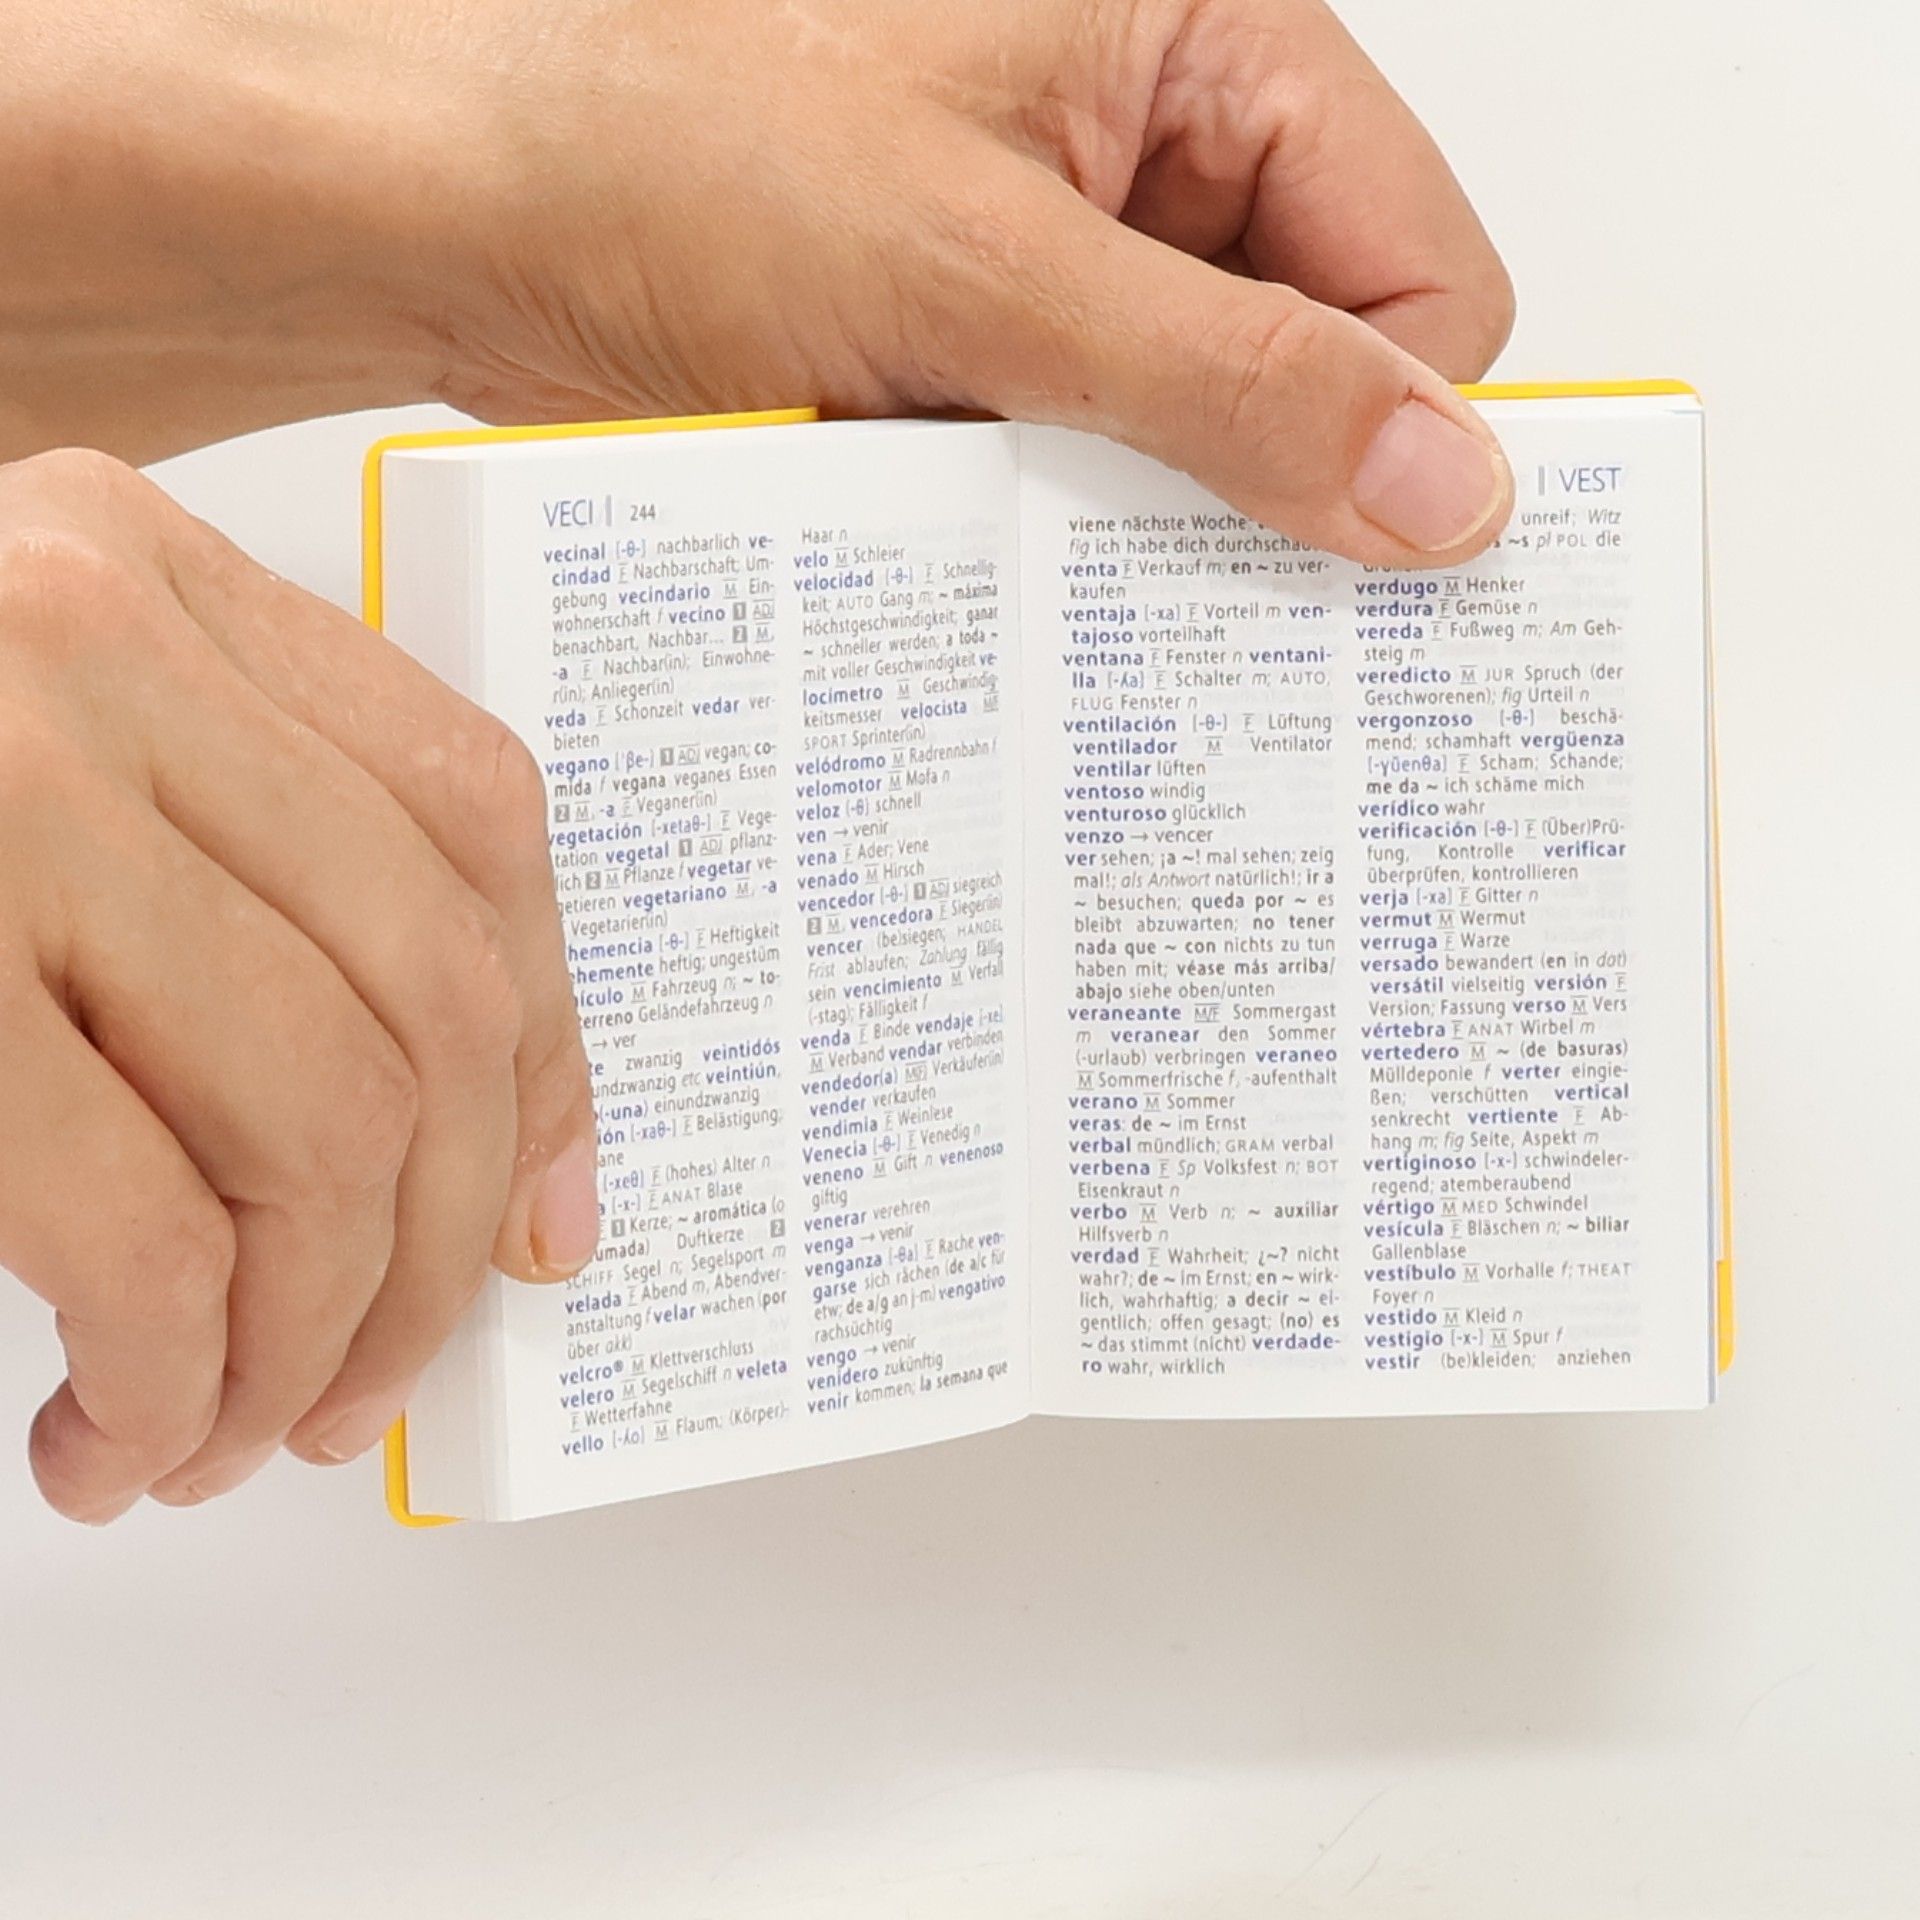 VECI | 244
vecinal [-θ-] nachbarlich ve-
cindad F Nachbarschaft; Um-
gebung vecindario M Ein-
wohnerschaft f vecino 1 ADJ
benachbart, Nachbar... 2 M,
-a F Nachbar(in); Einwohne-
r(in); Anlieger(in)
veda F Schonzeit vedar ver-
bieten
vegano ['βe-] 1 ADJ vegan; co-
mida f vegana veganes Essen
2 M, -a F Veganer(in)
vegetación [-xetaθ-] F Vege-
tation vegetal 1 ADJ pflanz-
lich 2 M Pflanze f vegetar ve-
getieren vegetariano M, -a
Vegetarier(in)
hemencia [-θ-] F Heftigkeit
hemente heftig; ungestüm
ículo M Fahrzeug n; ~ to-
erreno Geländefahrzeug n
→ ver
te zwanzig veintidós
undzwanzig etc veintiún,
(-una) einundzwanzig
ión [-xaθ-] F Belästigung;
ane
[-xeθ] F (hohes) Alter n
a [-x-] F ANAT Blase
1 Kerze; ~ aromática (o
umada) Duftkerze 2
SCHIFF Segel n; Segelsport m
velada F Abend m, Abendver-
anstaltung f velar wachen (por
über akk)
velcro® M Klettverschluss
velero M Segelschiff n veleta
F Wetterfahne
vello [-ʎo] M Flaum; (Körper)-
Haar n
velo M Schleier
velocidad [-θ-] F Schnellig-
keit; AUTO Gang m; ~ máxima
Höchstgeschwindigkeit; ganar
~ schneller werden; a toda ~
mit voller Geschwindigkeit ve-
locímetro M Geschwindig-
keitsmesser velocista M/F
SPORT Sprinter(in)
velódromo M Radrennbahn f
velomotor M Mofa n
veloz [-θ] schnell
ven → venir
vena F Ader; Vene
venado M Hirsch
vencedor [-θ-] 1 ADJ siegreich
2 M, vencedora F Sieger(in)
vencer (be)siegen; HANDEL
Frist ablaufen; Zahlung fällig
sein vencimiento M Verfall
(-stag); Fälligkeit f
venda F Binde vendaje [-xe]
M Verband vendar verbinden
vendedor(a) M(F) Verkäufer(in)
vender verkaufen
vendimia F Weinlese
Venecia [-θ-] F Venedig n
veneno M Gift n venenoso
giftig
venerar verehren
venga → venir
venganza [-θa] F Rache ven-
garse sich rächen (de a/c für
etw; de a/g an j-m) vengativo
rachsüchtig
vengo → venir
venidero zukünftig
venir kommen; la semana que
| VEST
viene nächste Woche;
fig ich habe dich durchschau
venta F Verkauf m; en ~ zu ver-
kaufen
ventaja [-xa] F Vorteil m ven-
tajoso vorteilhaft
ventana F Fenster n ventani-
lla [-ʎa] F Schalter m; AUTO,
FLUG Fenster n
ventilación [-θ-] F Lüftung
ventilador M Ventilator
ventilar lüften
ventoso windig
venturoso glücklich
venzo → vencer
ver sehen; ¡a ~! mal sehen; zeig
mal!; als Antwort natürlich!; ir a
~ besuchen; queda por ~ es
bleibt abzuwarten; no tener
nada que ~ con nichts zu tun
haben mit; véase más arriba/
abajo siehe oben/unten
veraneante M/F Sommergast
m veranear den Sommer
(-urlaub) verbringen veraneo
M Sommerfrische f, -aufenthalt
verano M Sommer
veras: de ~ im Ernst
verbal mündlich; GRAM verbal
verbena F Sp Volksfest n; BOT
Eisenkraut n
verbo M Verb n; ~ auxiliar
Hilfsverb n
verdad F Wahrheit; ¿~? nicht
wahr?; de ~ im Ernst; en ~ wirk-
lich, wahrhaftig; a decir ~ ei-
gentlich; offen gesagt; (no) es
~ das stimmt (nicht) verdade-
ro wahr, wirklich
unreif; Witz
~s pl POL die
verdugo M Henker
verdura F Gemüse n
vereda F Fußweg m; Am Geh-
steig m
veredicto M JUR Spruch (der
Geschworenen); fig Urteil n
vergonzoso [-θ-] beschä-
mend; schamhaft vergüenza
[-γŭenθa] F Scham; Schande;
me da ~ ich schäme mich
verídico wahr
verificación [-θ-] F (Über)Prü-
fung, Kontrolle verificar
überprüfen, kontrollieren
verja [-xa] F Gitter n
vermut M Wermut
verruga F Warze
versado bewandert (en in dat)
versátil vielseitig versión F
Version; Fassung verso M Vers
vértebra F ANAT Wirbel m
vertedero M ~ (de basuras)
Mülldeponie f verter eingie-
ßen; verschütten vertical
senkrecht vertiente F Ab-
hang m; fig Seite, Aspekt m
vertiginoso [-x-] schwindeler-
regend; atemberaubend
vértigo M MED Schwindel
vesícula F Bläschen n; ~ biliar
Gallenblase
vestíbulo M Vorhalle f; THEAT
Foyer n
vestido M Kleid n
vestigio [-x-] M Spur f
vestir (be)kleiden; anziehen